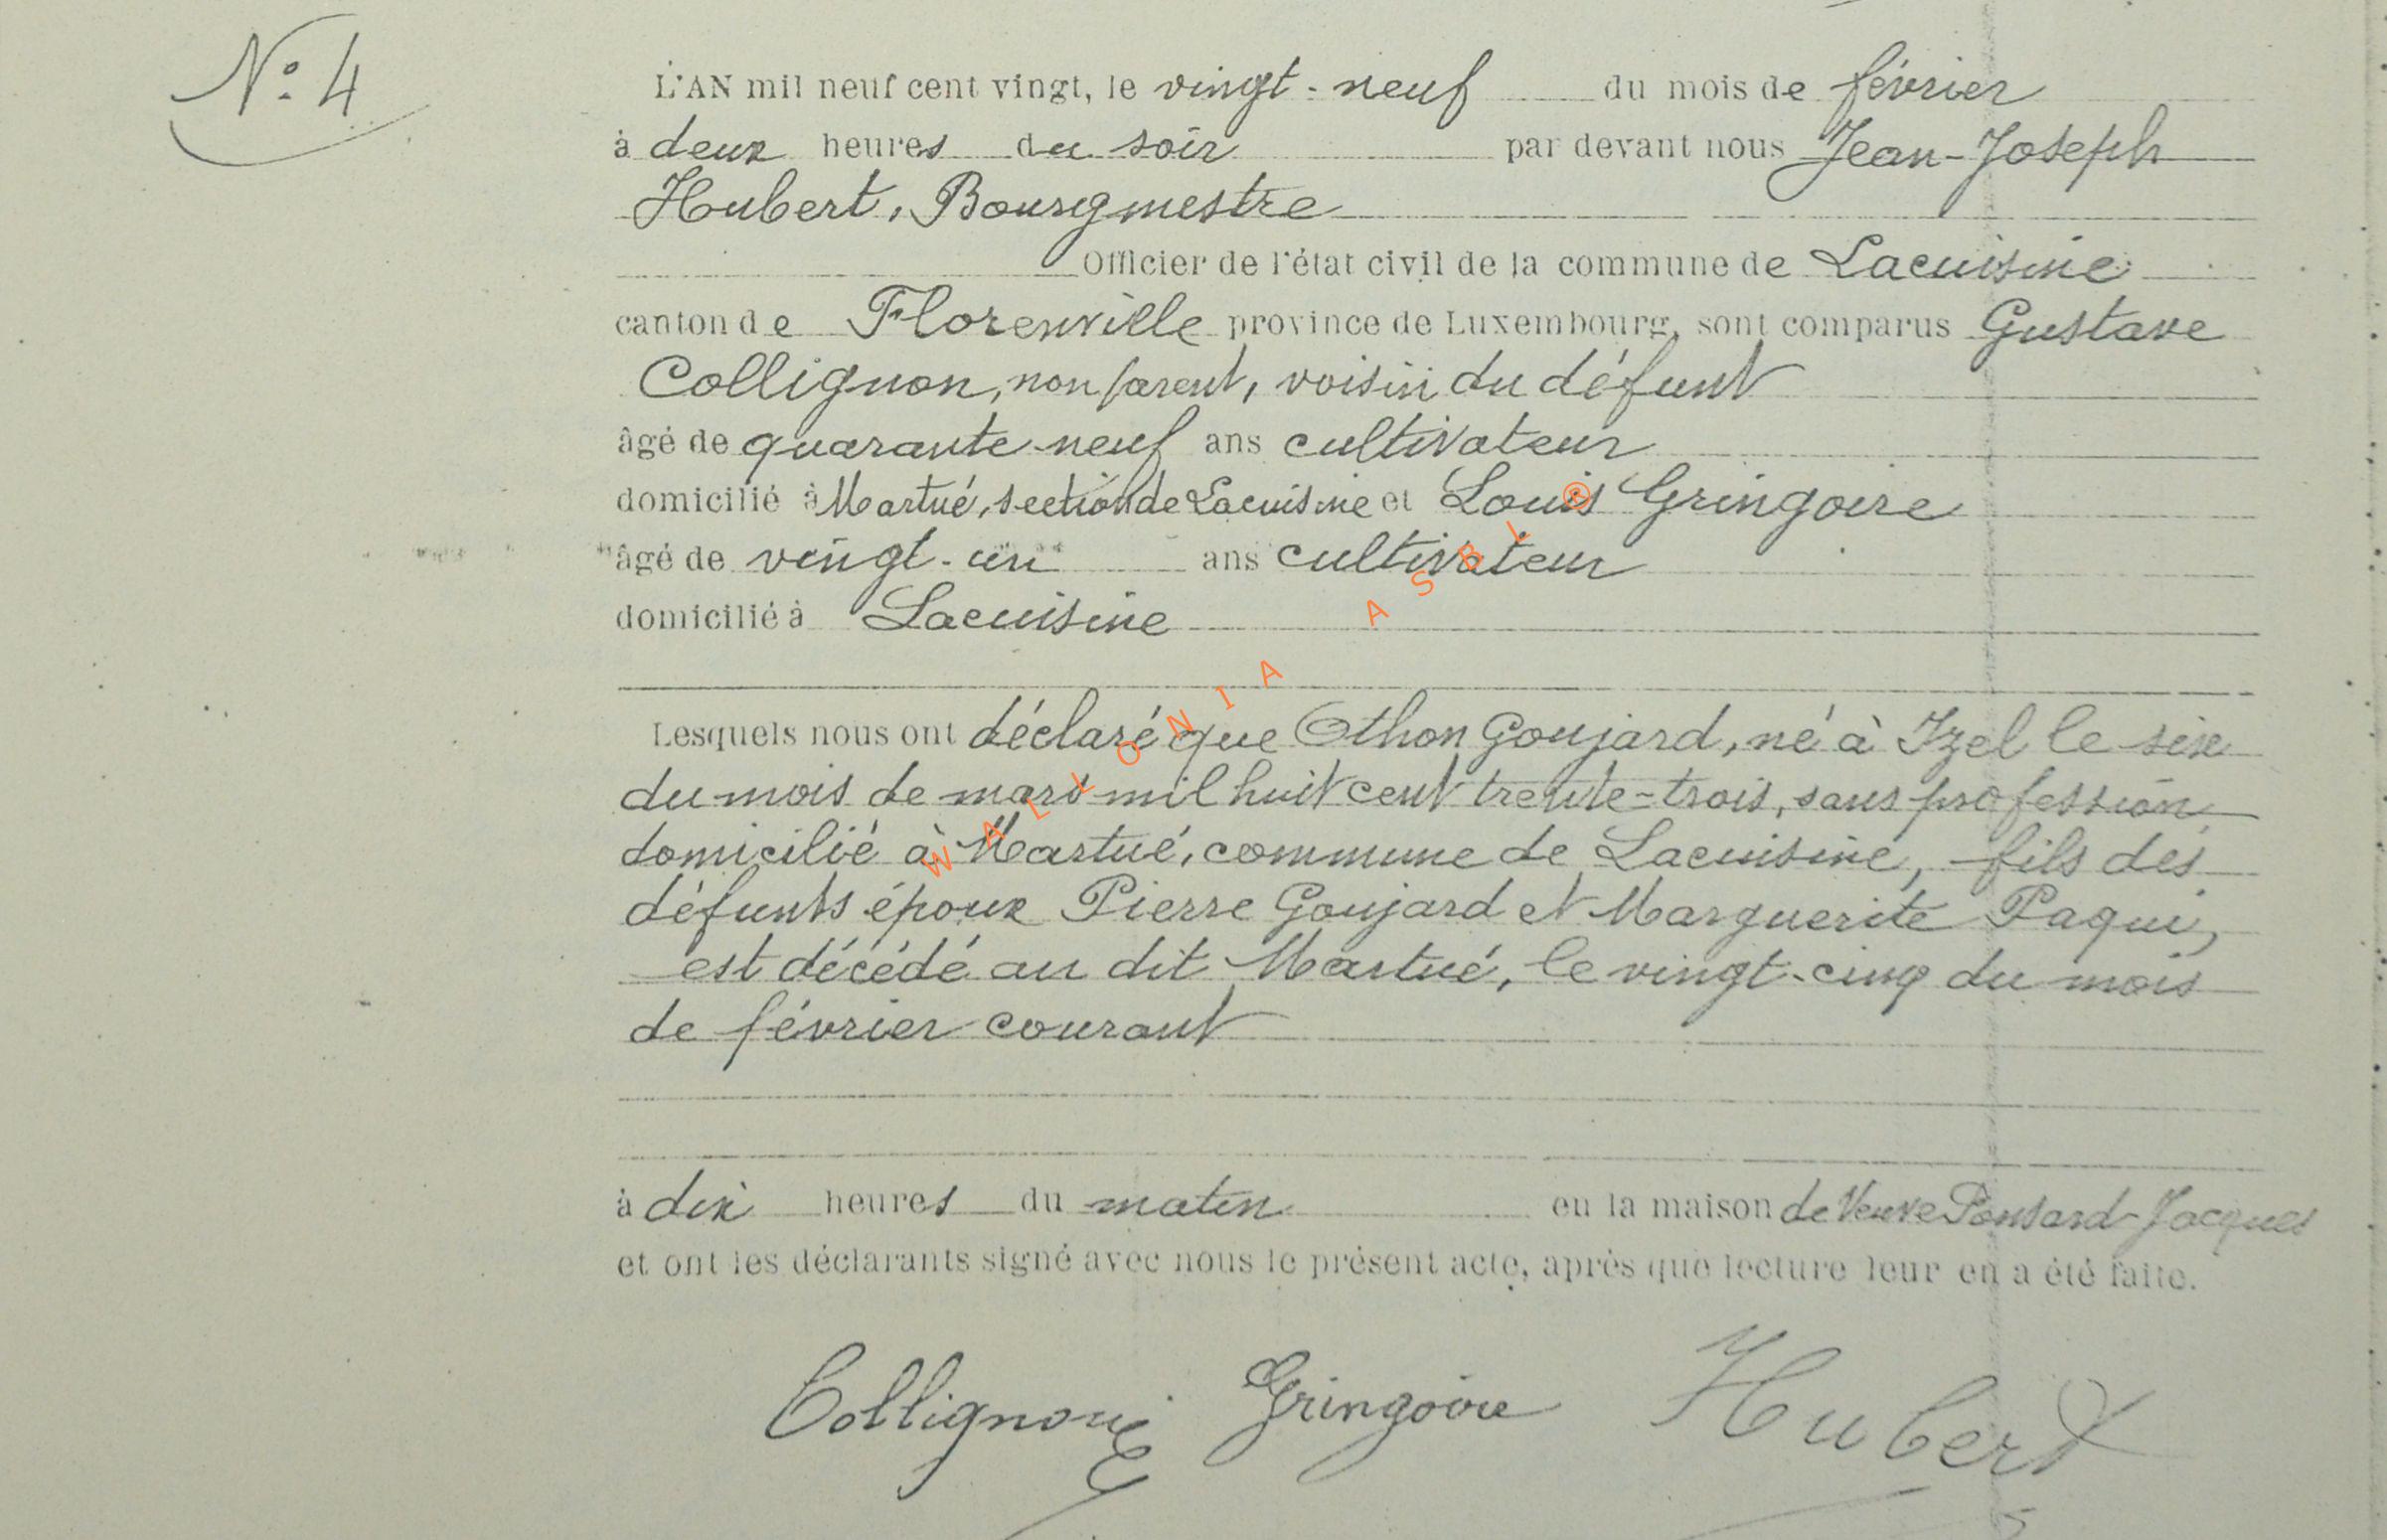 N° 4
L'AN mil neuf cent vingt, le vingt-neuf du mois de février
à deux heures du soir par devant nous Jean-Joseph
Hubert, Bourgmestre
Officier de l'état civil de la commune de Lacuisine
canton de Florenville province de Luxembourg, sont comparus Gustave
Collignon, non parent, voisin du défunt
âgé de quarante-neuf ans cultivateur
domicilié à Martué, section de Lacuisine et Louis Gringoire
âgé de vingt-un ans cultivateur
domicilié à Lacuisine
Lesquels nous ont déclaré que Othon Goujard, né à Izel le six
du mois de mars mil huit cent trente-trois, sans profession
domicilié à Martué, commune de Lacuisine, fils des
défunts époux Pierre Goujard et Marguerite Paqui,
est décédé au dit Martué, le vingt-cinq du mois
de février courant
à dix heures du matin en la maison de Veuve Ponsard-Jacques
et ont les déclarants signé avec nous le présent acte, après que lecture leur en a été faite.
Collignon G Gringoire Hubert
WALLONIA ASBL ®